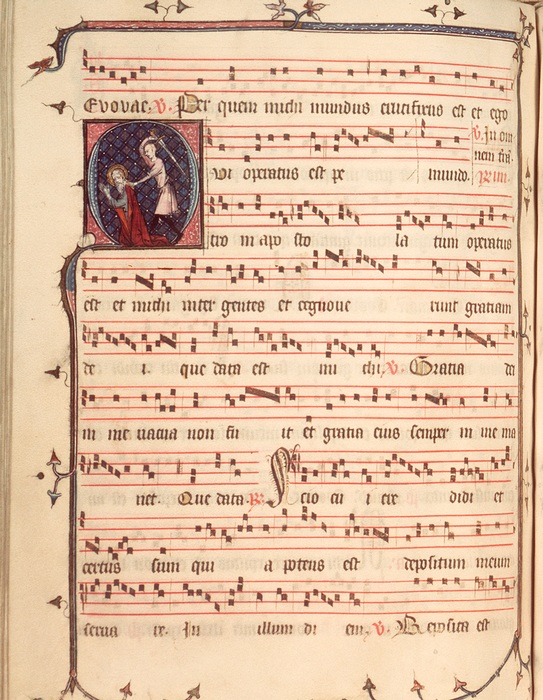 Evovae. V. Per quem michi mundus crucifixus est et ego
V. In om
nem t̄rā.
Qui operatus est pe mundo. Prim.
tro in apo sto la tum operatus
est et michi inter gentes et cognove runt gratiam
de i. que data est mi chi. V. Gratia de
in me vacua non fu it et gratia eius semper in me ma
net. Que data. R. Scio cu i cre didi et
certus sum qui a potens est depositum meum
serva re. In illum di em. V. Reposita est